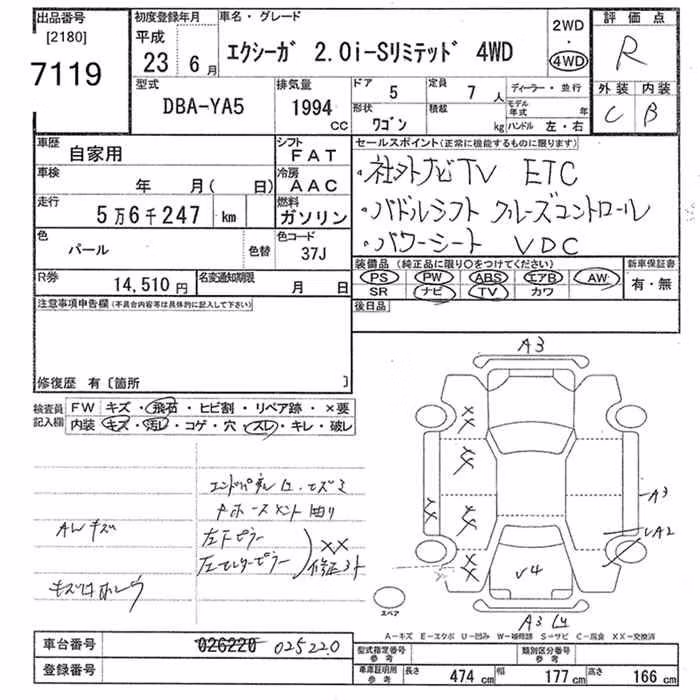 出品番号 初度登録年月 車名・グレード 2WD 評価点
[2180] 平成 ・ R
7119 23 6月 エクシーガ 2.0i-Sリミテッド 4WD 4WD
型式 排気量 ドア 定員 ディーラー・並行 外装 内装
DBA-YA5 1994 CC 5 7人 モデル年式 年 C B
形状 積載
ワゴン kg ハンドル 左・右
車歴 自家用 シフト FAT セールスポイント(正常に機能するものに限ります)
車検 年 月( 日) 冷房 AAC ・社外ナビTV ETC
走行 5万6千247 km 燃料 ガソリン ・パドルシフト クルーズコントロール
色 パール 色替 色コード 37J ・パワーシート VDC
R券 14,510円 名変通知期限 月 日 装備品(純正品に限り○をつけてください) 新車保証書
PS PW ABS エアB AW 有・無
SR ナビ TV カワ
注意事項申告欄(不具合内容等は具体的に記入して下さい) 後日品
修復歴 有〔箇所 〕
検査員記入欄 FW キズ・飛石・ヒビ割・リペア跡・×要
内装 キズ・汚レ・コゲ・穴・スレ・キレ・破レ
A3
XX
XX
XX XX
A3
XX
V4
A3
AWキズ
左Fピラー
左センターピラー
XX
スペア
A-キズ E-エクボ U-凹み W-補修跡 S-サビ C-腐食 XX-交換済
車台番号 026220 025220 型式指定番号 参考 類別区分番号 参考
登録番号 車庫証明用 参考 長さ 474cm 幅 177cm 高さ 166cm